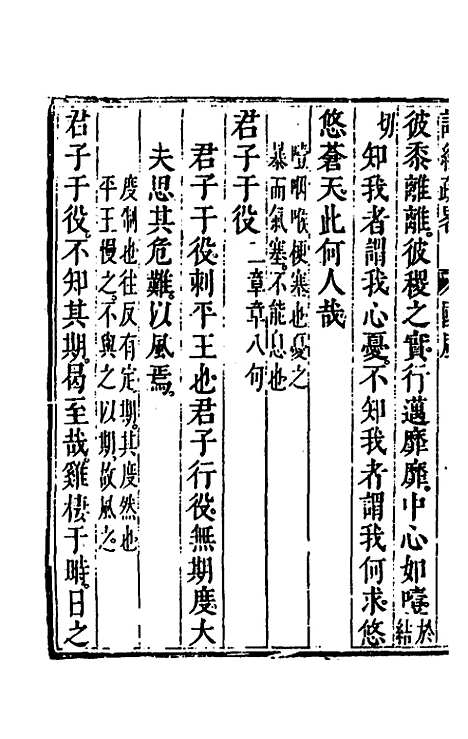 彼黍離離。彼稷之實。行邁靡靡。中心如噎。於結
切知我者。謂我心憂。不知我者謂我何求。悠
悠蒼天。此何人哉
噎咽喉梗塞也憂之
暴而氣塞。不能息也
君子于役二章章八句
君子于役。刺平王也君子行役。無期度。大
夫思其危難。以風焉。
度制也往反有定期。其度然也
平王慢之。不與之以期。故風之
君子于役。不知其期。曷至哉。雞棲于塒。日之